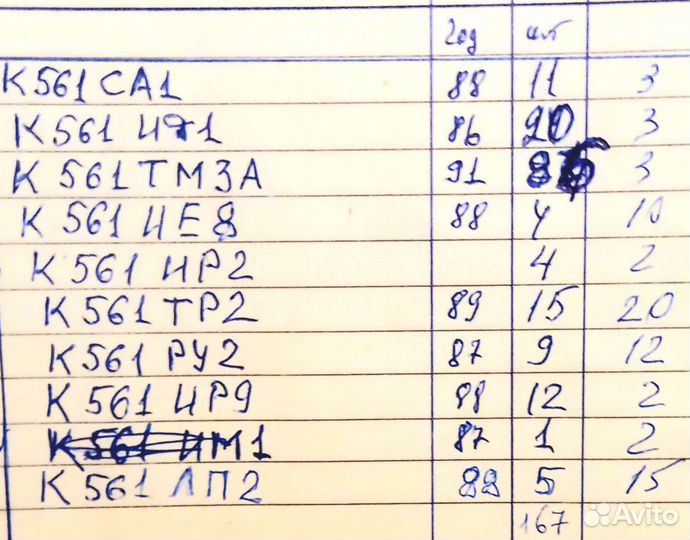 Год шт
К561 СА1 88 11 3
К561 ИД1 86 20 3
К561 ТМ3А 91 3
К561 ИЕ8 88 4 10
К561 ИР2 4 2
К561 ТР2 89 15 20
К561 РУ2 87 9 12
К561 ИР9 88 12 2
К561 ИМ1 87 1 2
К561 ЛП2 88 5 15
167
Avito